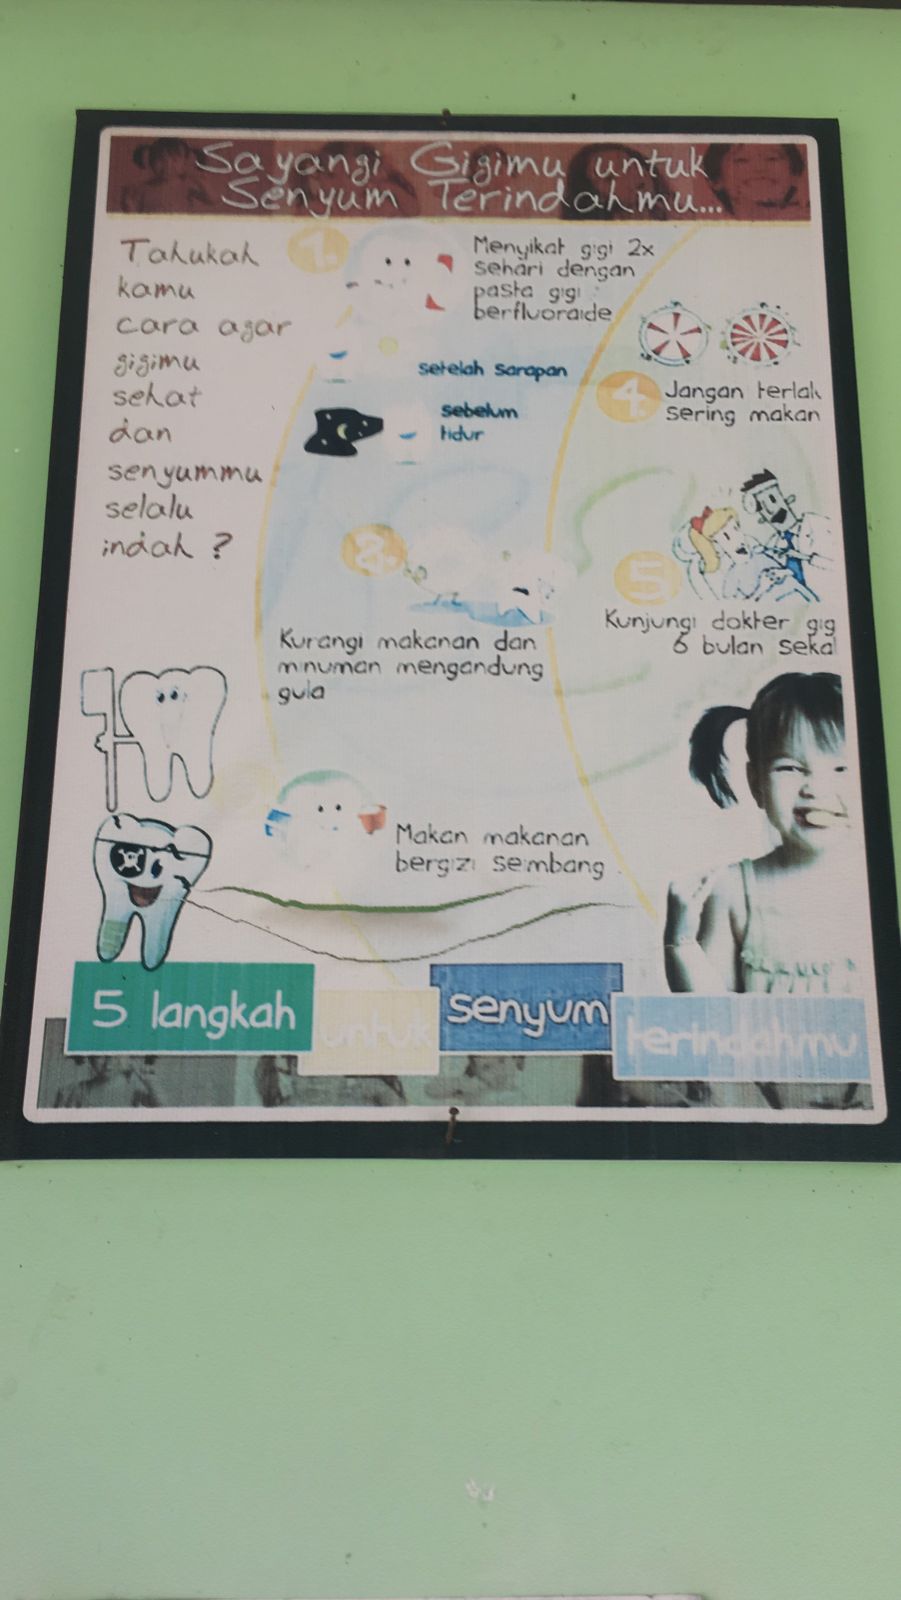 Sayangi Gigimu untuk
Senyum Terindahmu...
Tahukah
kamu
cara agar
gigimu
sehat
dan
senyummu
selalu
indah ?
1.
Menyikat gigi 2x
sehari dengan
pasta gigi
berfluoraide
setelah sarapan
sebelum
tidur
2.
Kurangi makanan dan
minuman mengandung
gula
Makan makanan
bergizi seimbang
4.
Jangan terlalu
sering makan
5
Kunjungi dokter gig
6 bulan sekal
5 langkah
untuk
senyum
terindahmu